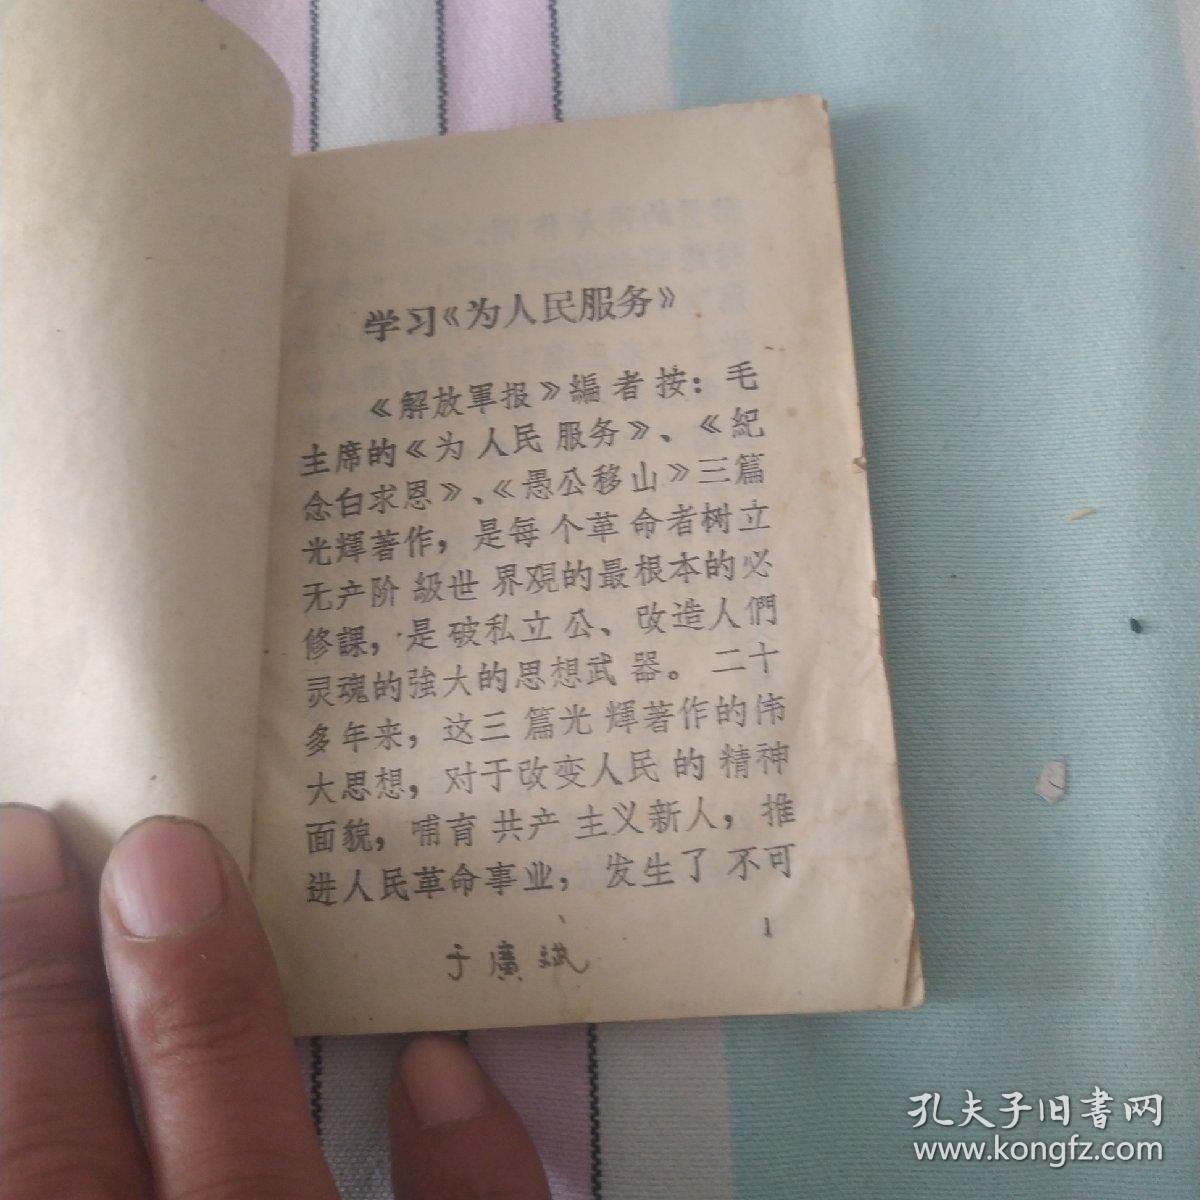 学习《为人民服务》
《解放軍报》編者按：毛
主席的《为人民服务》、《紀
念白求恩》、《愚公移山》三篇
光輝著作，是每个革命者树立
无产阶級世界观的最根本的必
修課，是破私立公、改造人們
灵魂的強大的思想武器。二十
多年来，这三篇光輝著作的伟
大思想，对于改变人民的精神
面貌，哺育共产主义新人，推
进人民革命事业，发生了不可
1
于廣斌
孔夫子旧書网
www.kongfz.com